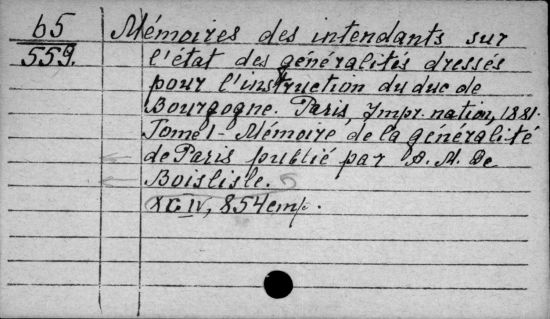 65
559.
Mémoires des intendants sur
l'état des généralités dressés
pour l'instruction du duc de
Bourgogne. Paris, Impr. nation, 1881-
Tome I - Mémoire de la généralité
de Paris publié par A. M. De
Boislisle.
XCIV, 854 cmp.